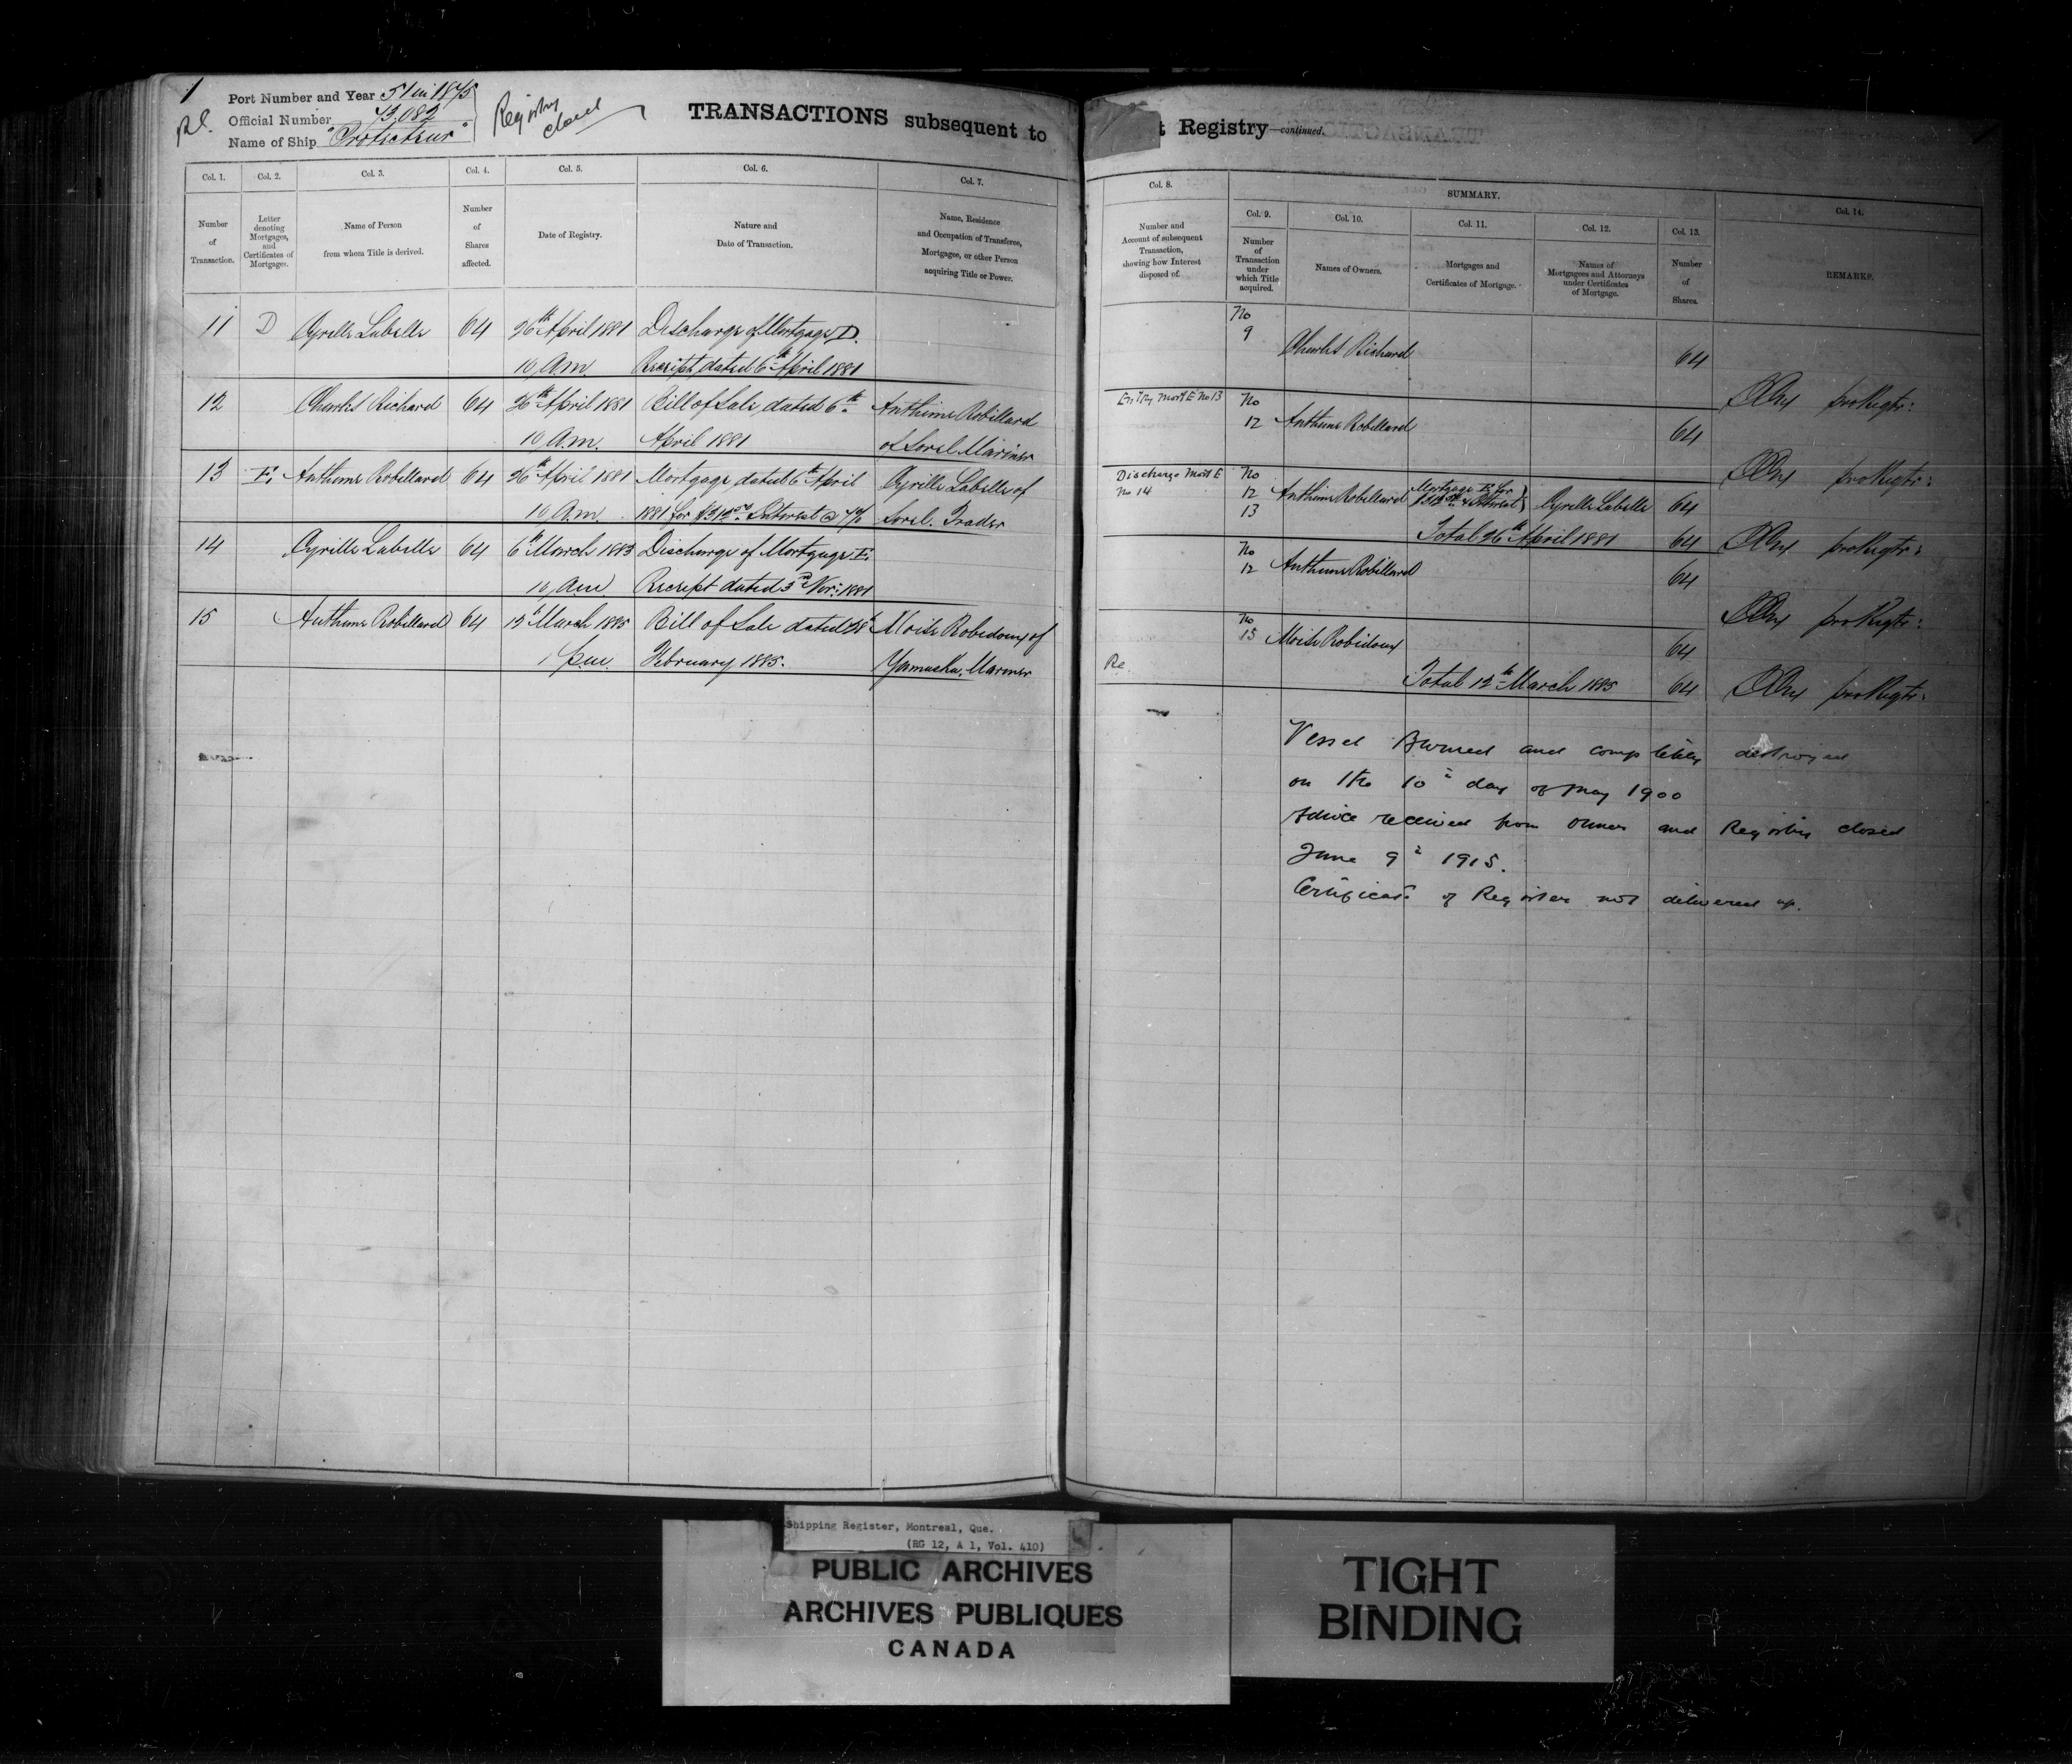 1
Port Number and Year 51 in 1875
Official Number 73,082
Name of Ship "Protecteur"
Registry
closed
TRANSACTIONS subsequent to
t Registry—continued.
Col. 1. Col. 2. Col. 3. Col. 4. Col. 5. Col. 6. Col. 7.
Number of Transaction.
Letter denoting Mortgages, and Certificates of Mortgages.
Name of Person from whom Title is derived.
Number of Shares affected.
Date of Registry.
Nature and Date of Transaction.
Name, Residence and Occupation of Transferee, Mortgagee, or other Person acquiring Title or Power.
11 D Cyrille Labelle 64 26th April 1881 Discharge of Mortgage D.
10 A.m. Receipt dated 6th April 1881
12 Charles Richard 64 26th April 1881 Bill of Sale dated 6th Anthime Robillard
10 A.m. April 1881 of Sorel Mariner
13 E. Anthime Robillard 64 26th April 1881 Mortgage dated 6th April Cyrille Labelle of
10 A.m. 1881 for Interest @ 7% Sorel. Trader
14 Cyrille Labelle 64 6th March 1883 Discharge of Mortgage E.
10 am Receipt dated 3rd Nov: 1881
15 Anthime Robillard 64 12th March 1885 Bill of Sale dated 28th Moise Robidoux of
1 p.m. February 1885. Yamaska, Mariner
Col. 8. SUMMARY. Col. 14.
Col. 9. Col. 10. Col. 11. Col. 12. Col. 13.
Number and Account of subsequent Transaction, showing how Interest disposed of.
Number of Transaction under which Title acquired.
Names of Owners.
Mortgages and Certificates of Mortgage.
Names of Mortgagees and Attorneys under Certificates of Mortgage.
Number of Shares.
REMARKS.
No
9 Charles Richard 64
pro Regtr:
Ent'ry Mort E No 13 No
12 Anthime Robillard 64
pro Regtr:
Discharge Mort E No
No 14 12 Anthime Robillard Mortgage E. for Cyrille Labelle 64
13 & Interest
Total 26th April 1881 64 pro Regtr:
No
12 Anthime Robillard 64
pro Regtr:
No
15 Moise Robidoux 64
Re.
Total 12th March 1885 64 pro Regtr:
Vessel Burned and completely destroyed
on the 10th day of May 1900
Advice received from owner and Registry closed
June 9th 1915.
Certificate of Register not delivered up.
Shipping Register, Montreal, Que.
(RG 12, A 1, Vol. 410)
PUBLIC ARCHIVES
ARCHIVES PUBLIQUES
CANADA
TIGHT
BINDING